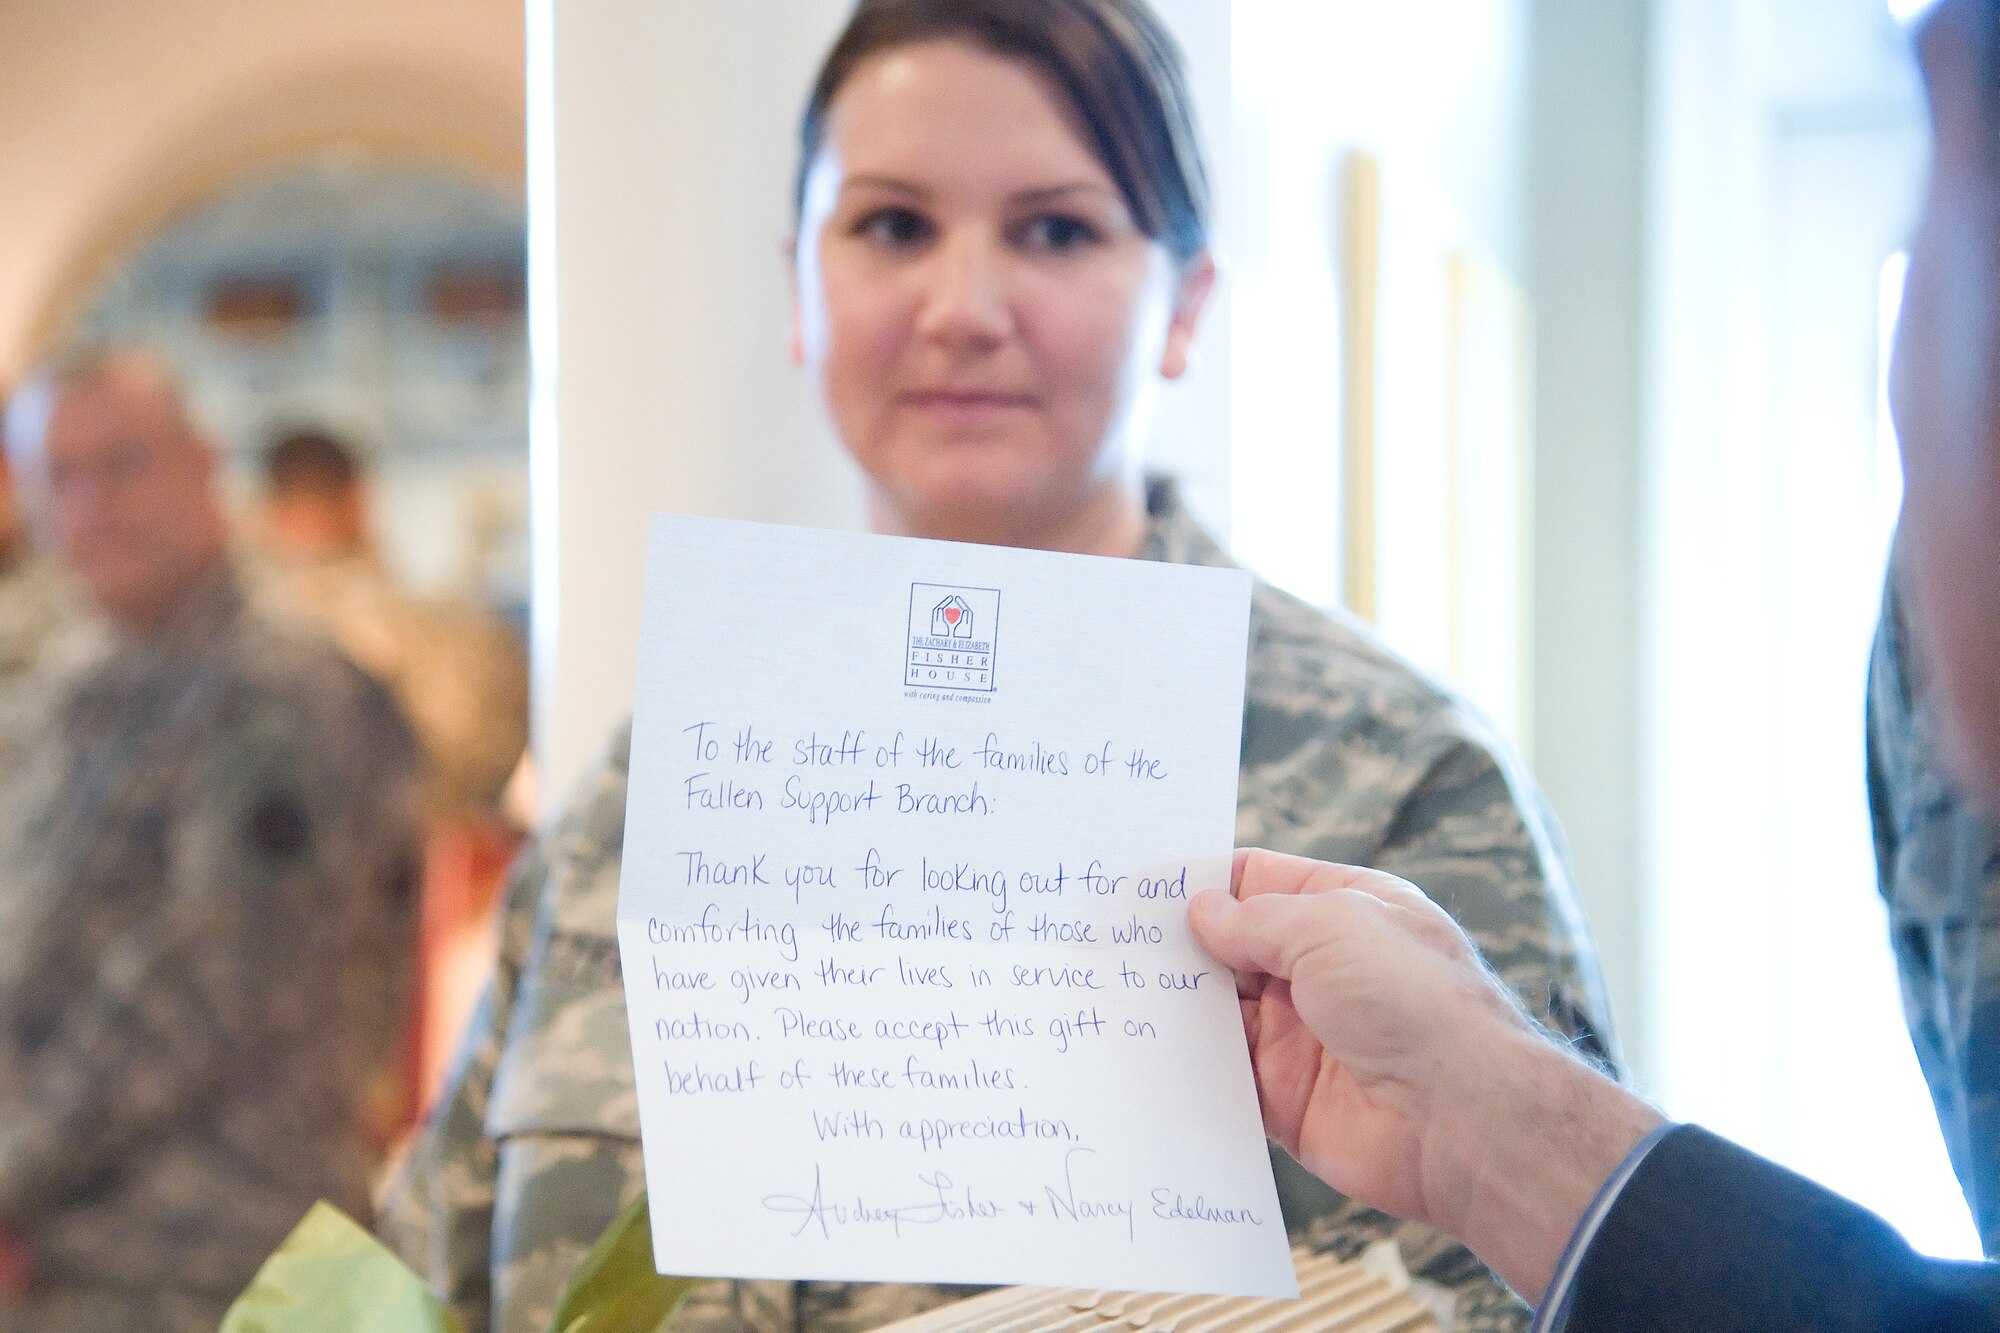 THE ZACHARY & ELIZABETH
FISHER
HOUSE®
with caring and compassion
To the staff of the families of the
Fallen Support Branch:
Thank you for looking out for and
comforting the families of those who
have given their lives in service to our
nation. Please accept this gift on
behalf of these families.
With appreciation,
Audrey Fisher + Nancy Edelman